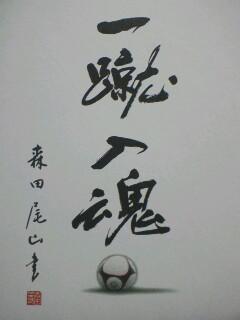 一蹴入魂
森田尾山書